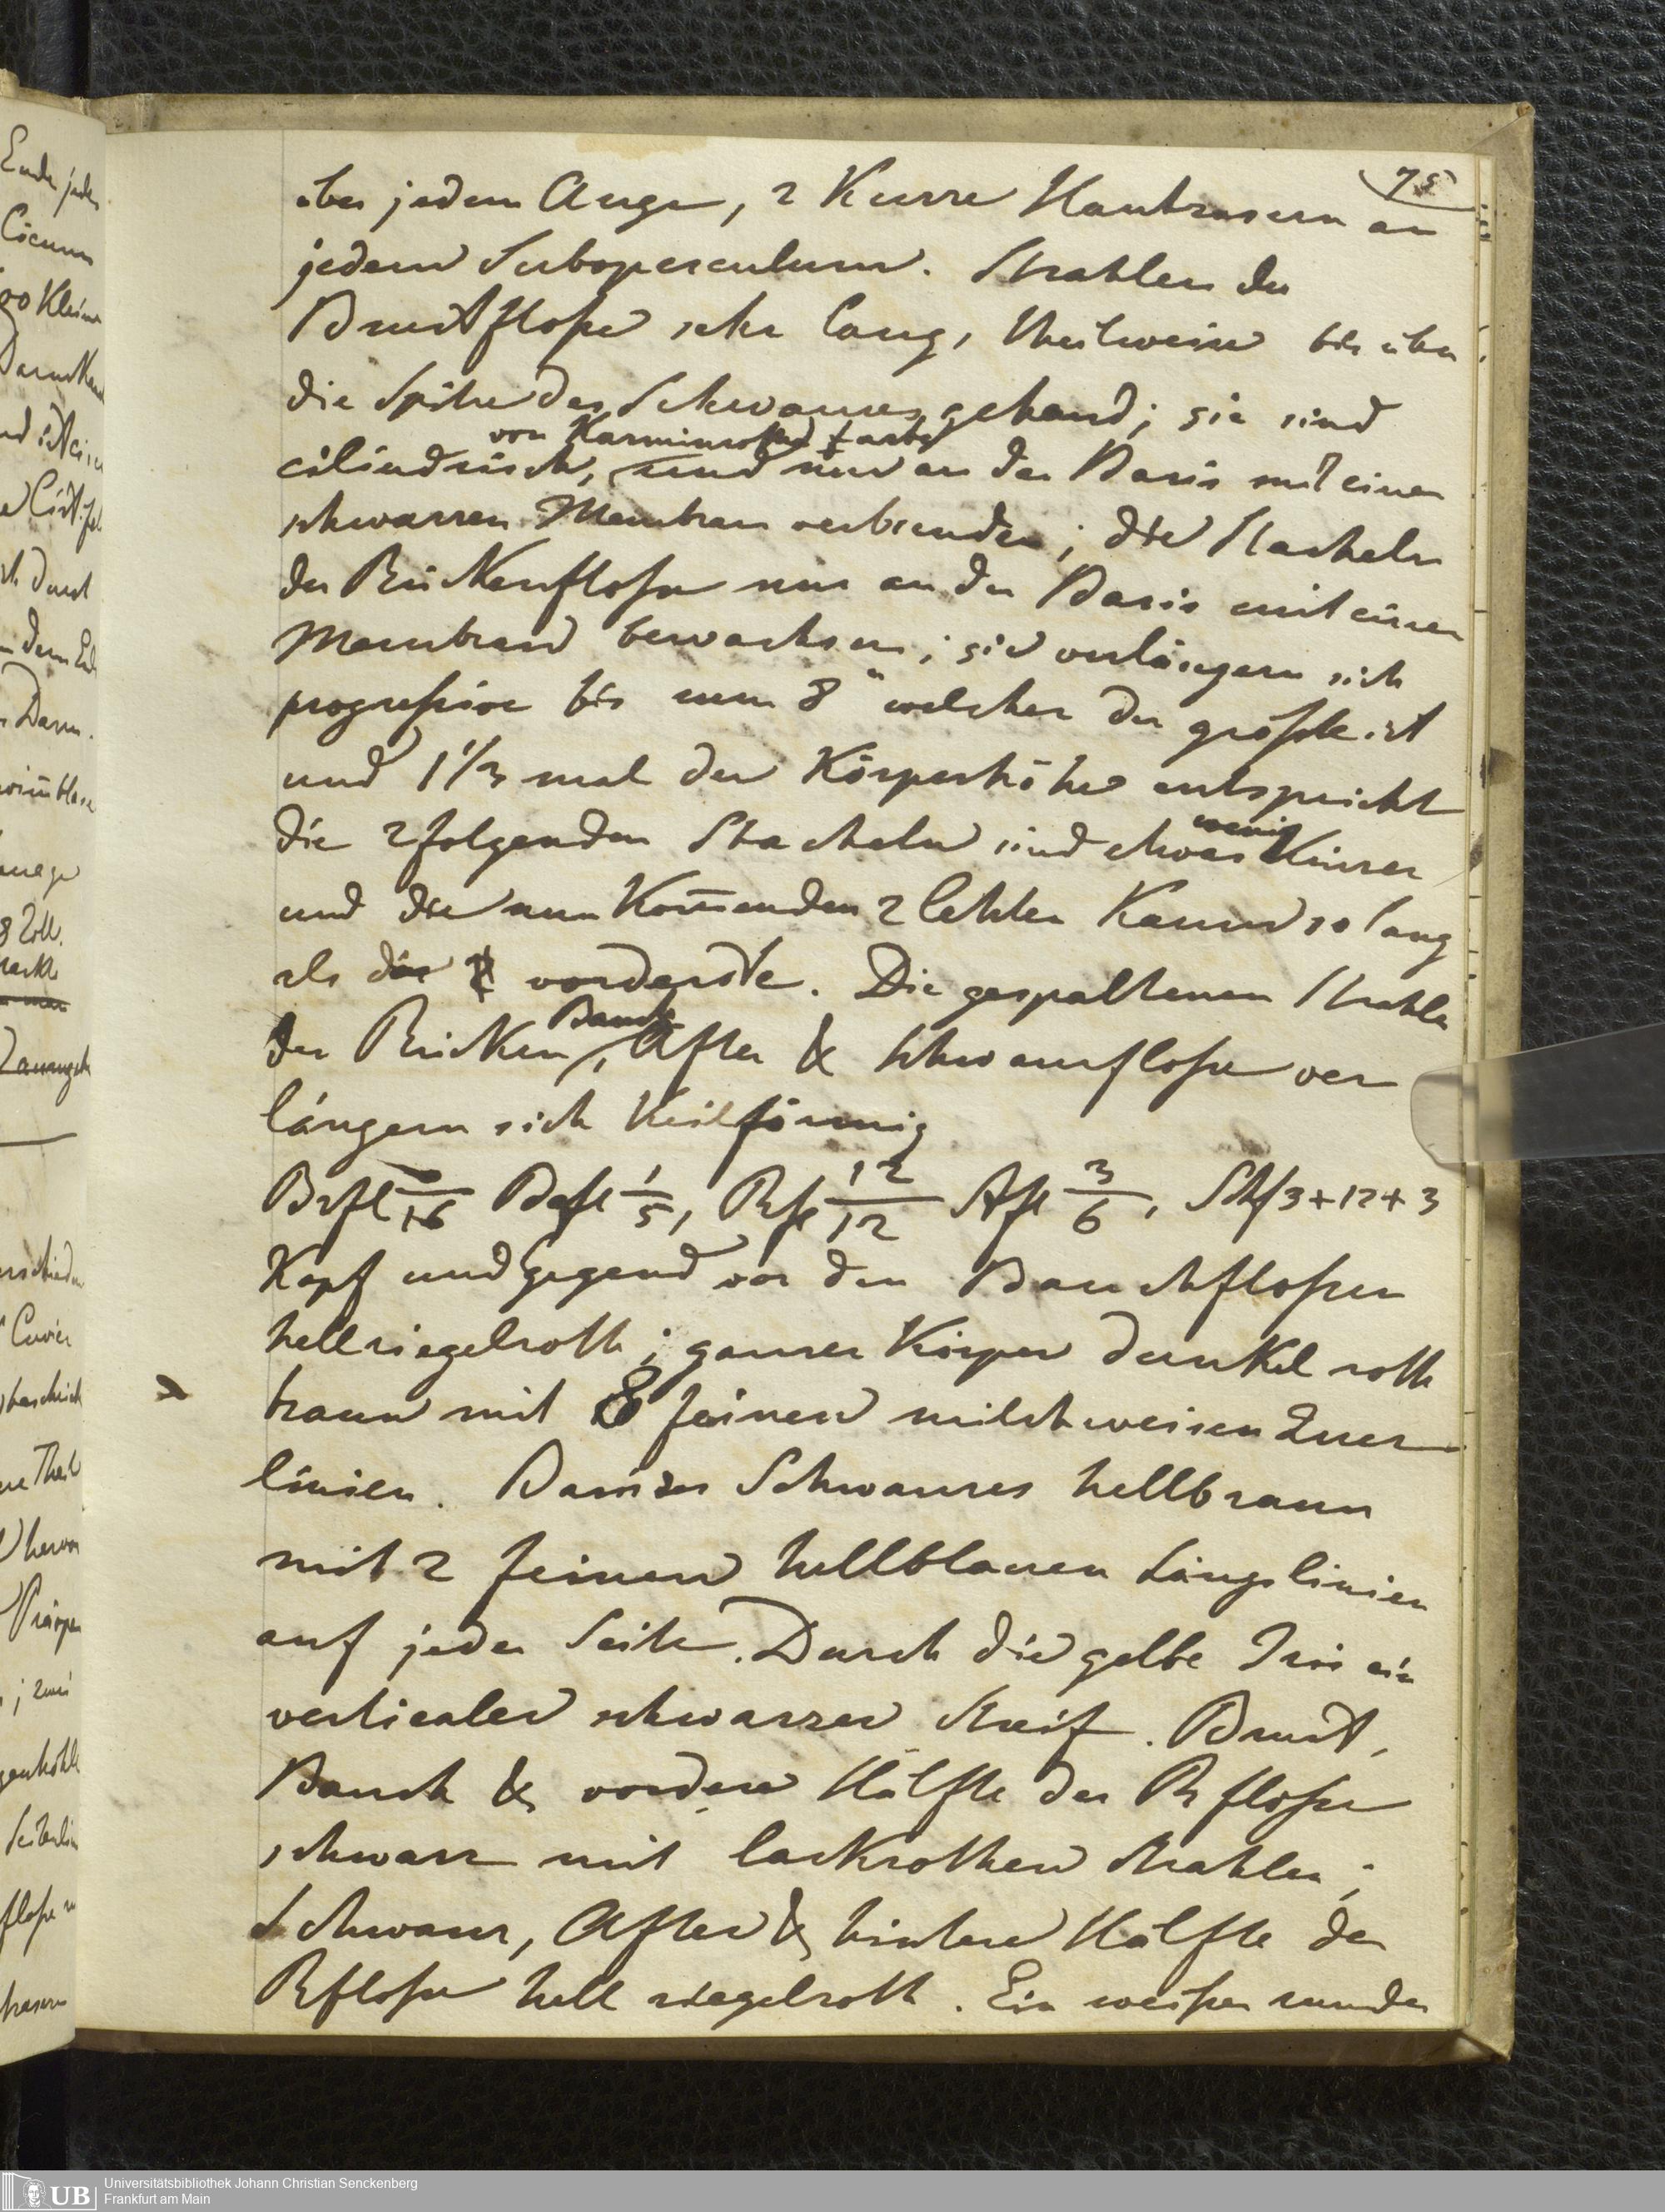 75
über jedem Auge, 2 Kurze Hautzasern an
jedem Suboperculum. Strahlen der
Brustfloße sehr lang, theilweise bis über
die Spitze des Schwanzes gehend; sie sind
von Karminrother Farbe
cilindrisch, und nur an der Basis mit einer
schwarzen Membran verbunden; die Stacheln
der Rückenfloße nur an der Basis mit einer
Membran bewachsen; sie verlängern sich
progreßive bis zum 8" welcher der größte ist
und 1 1/3 mal der Körperhöhe entspricht
wenig
die 2 folgenden Stacheln sind etwas Kürzer
und die nun Kom̄enden 2 letzten Kaum so lang
als der vorderste. Die gespaltenen Strahlen
Bauch
der Rücken, After & Schwanzfloße ver
längern sich Keilförmig
Brfl /16 Bafl 1/5, Rfl 12/12 Afl 3/6, Schfl 3+12+3
Kopf und Gegend vor den Bauchfloßen
hellziegelroth; ganzer Körper dunkel roth
braun mit 8 feinen milchweisen Quer
linien. Basis des Schwanzes hellbraun
mit 2 feinen hellblauen Längslinien
auf jeder Seite. Durch die gelbe Iris ein
verticaler schwarzer Streif. Brust,
Bauch & vordere Hälfte der Rfloße
schwarz mit lackrothen Strahlen;
Schwanz, After & hintere Hälfte der
Rfloße hell ziegelroth. Ein weißer runder
Universitätsbibliothek Johann Christian Senckenberg
Frankfurt am Main
UB